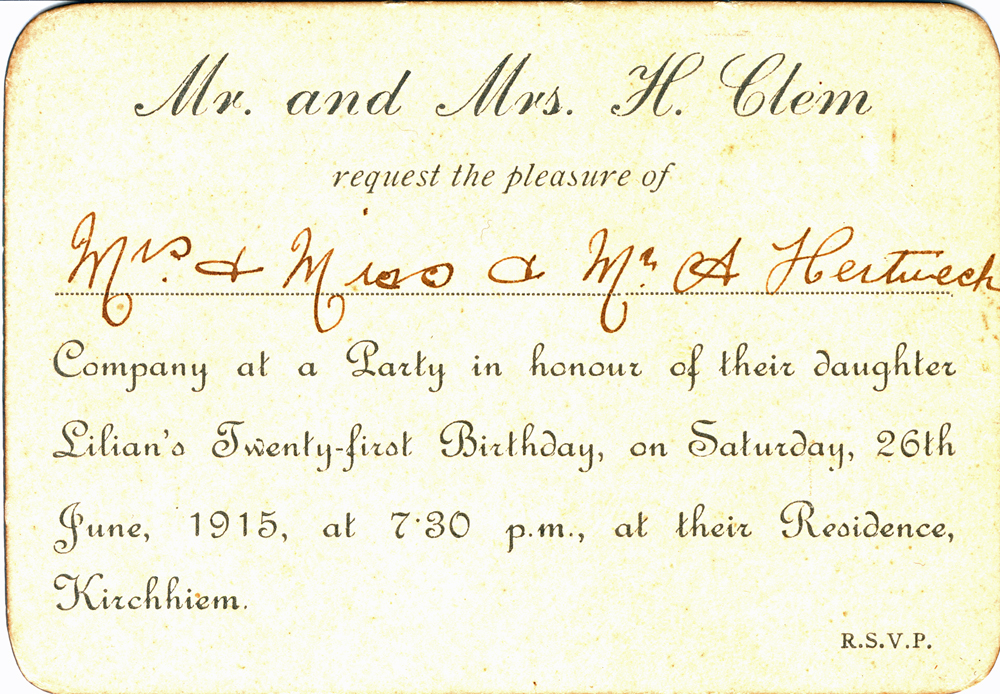 Mr. and Mrs. H. Clem
request the pleasure of
Mrs. & Miss & Mr. A Hertweck
Company at a Party in honour of their daughter
Lilian's Twenty-first Birthday, on Saturday, 26th
June, 1915, at 7·30 p.m., at their Residence,
Kirchhiem.
R.S.V.P.